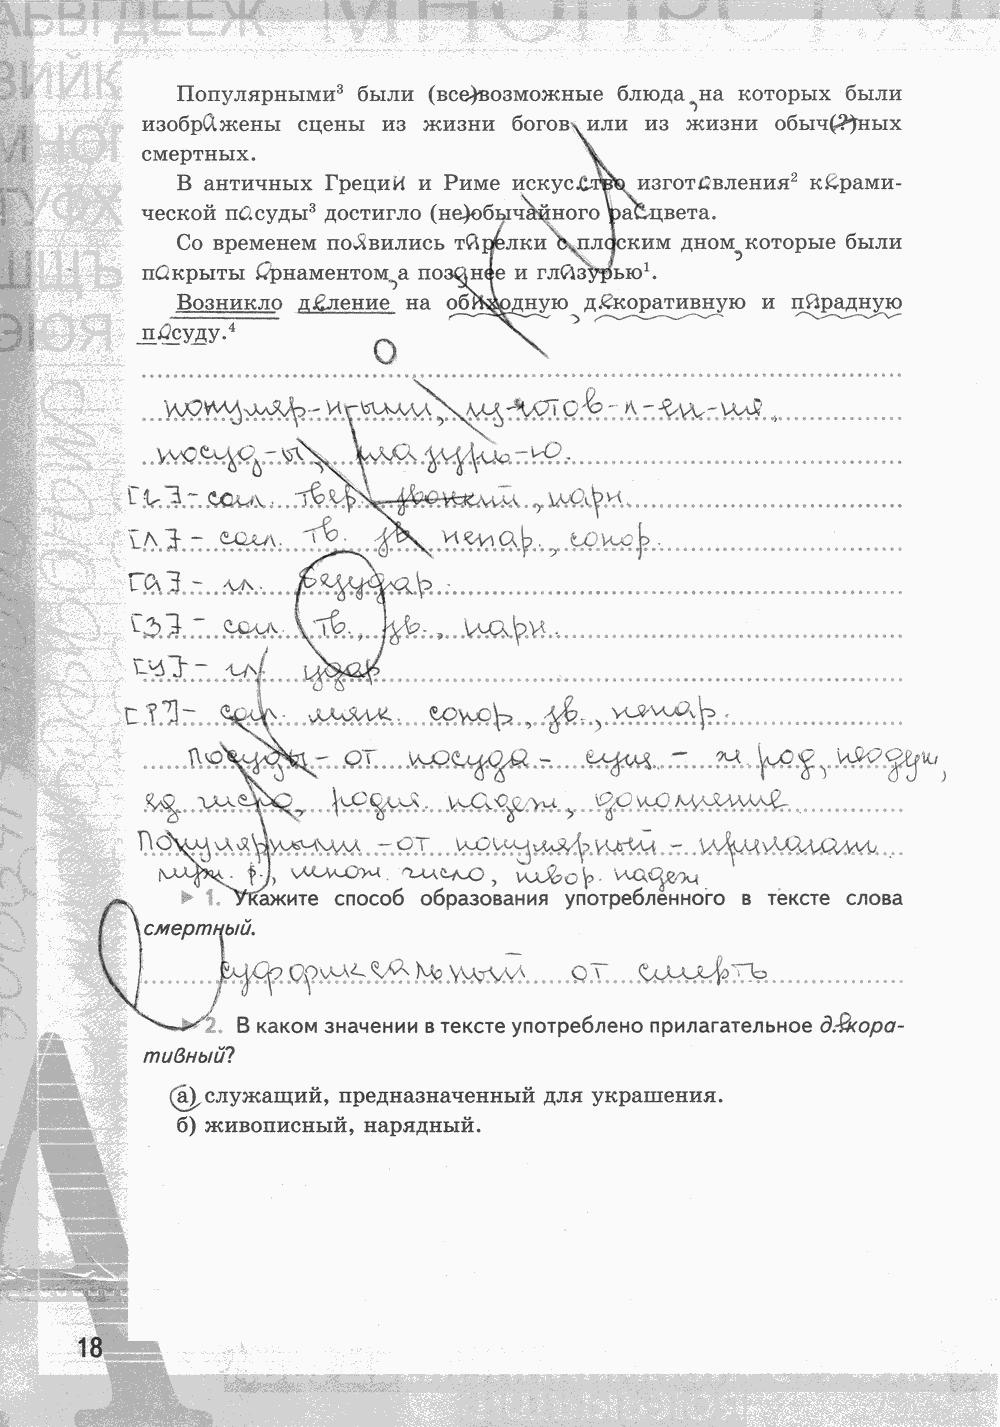 Популярными³ были (все)возможные блюда, на которых были
изображены сцены из жизни богов, или из жизни обыч(?)ных
смертных.
В античных Греции и Риме искусство изготовления² керами-
ческой посуды³ достигло (не)обычайного расцвета.
Со временем появились тарелки с плоским дном, которые были
покрыты орнаментом, а позднее и глазурью¹.
Возникло деление на обиходную, декоративную и парадную
посуду.⁴
популяр-н-ыми, из-готов-л-ен-ия,
посуд-ы, глазурь-ю.
[г] - согл. твер. звонкий, парн.
[л] - согл. тв. зв. непар., сонор.
[а] - гл. безудар.
[з] - согл. тв., зв., парн.
[у] - гл. удар
[р'] - согл. мягк. сонор, зв., непар.
Посуды - от посуда - сущ - ж род, неодуш,
ед число, родит. падеж, дополнение
Популярными - от популярный - прилагат
муж. р., множ. число, твор. падеж
1. Укажите способ образования употреблённого в тексте слова
смертный.
суффиксальный от смерть
2. В каком значении в тексте употреблено прилагательное декора-
тивный?
а) служащий, предназначенный для украшения.
б) живописный, нарядный.
18